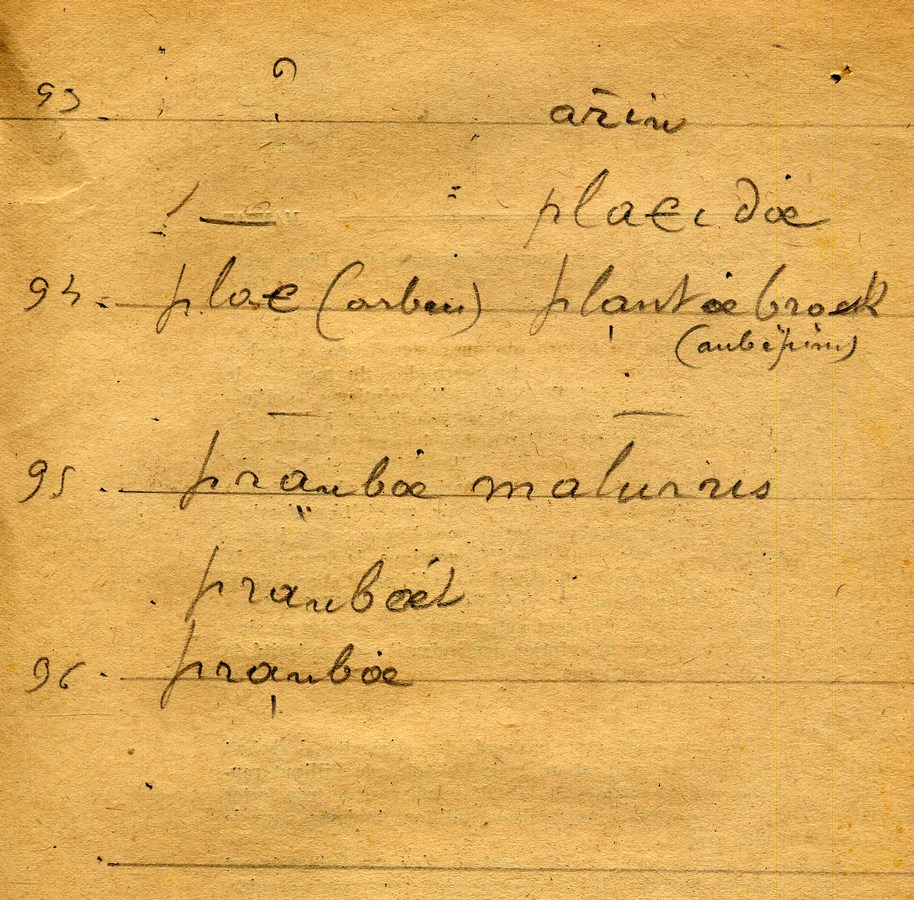 93 ? ar̄in
! — plaɛi dœ
94 plaɛ (arbru) plantœbrock
(aubépine)
95 pranbœ maturus
pranbœ́t
96 pranbœ